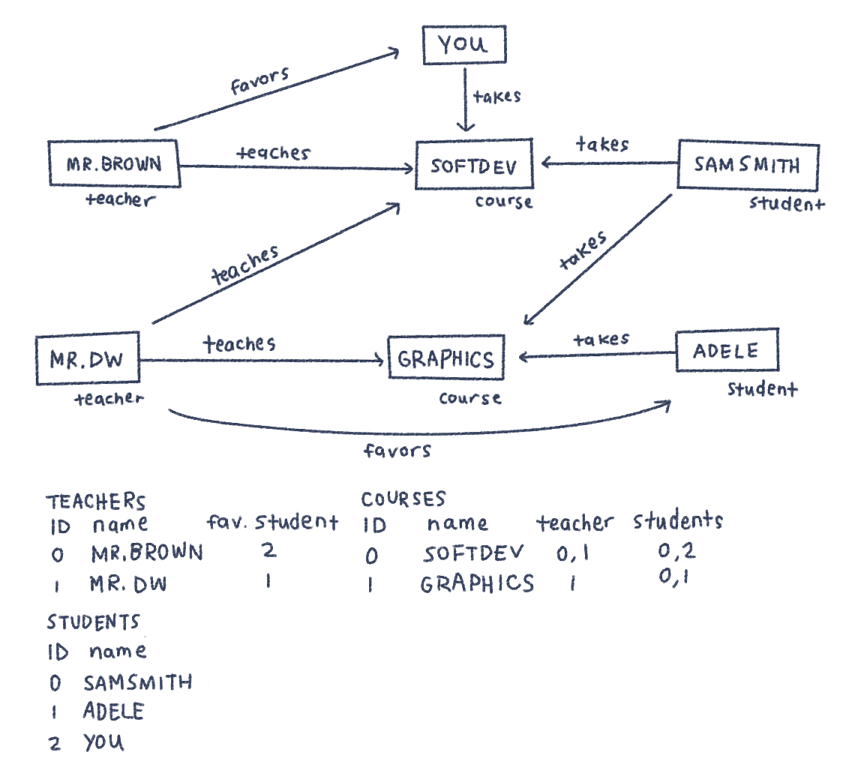 YOU
favors
takes
MR.BROWN
teaches
SOFTDEV
takes
SAMSMITH
teacher
course
student
teaches
takes
MR.DW
teaches
GRAPHICS
takes
ADELE
teacher
course
student
favors
TEACHERS
ID name fav. student
0 MR.BROWN 2
1 MR. DW 1
COURSES
ID name teacher students
0 SOFTDEV 0,1 0,2
1 GRAPHICS 1 0,1
STUDENTS
ID name
0 SAMSMITH
1 ADELE
2 YOU